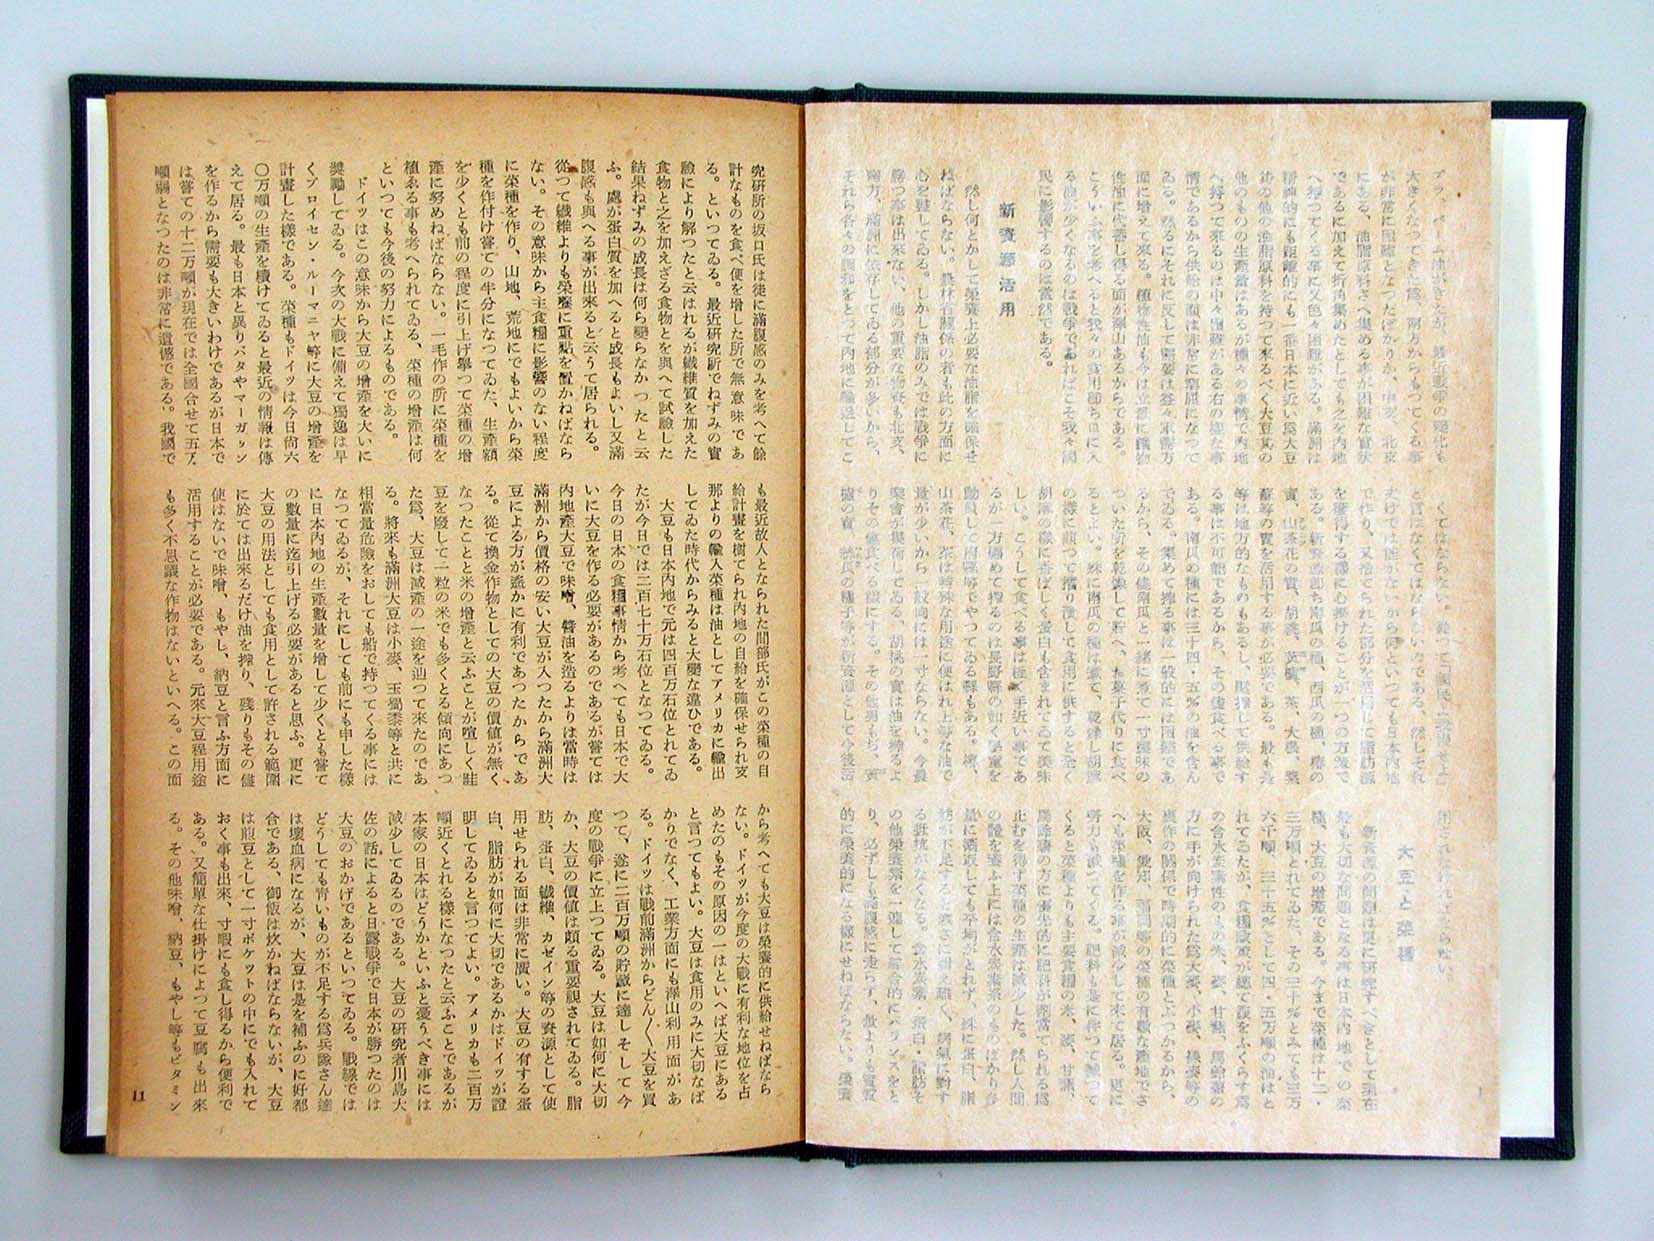 大きくなつてきた爲、南方からもつてくる事
が非常に困難となつたばかりか、中支、北支
にある、油脂原料さへ集める事が困難な實狀
であるに加えて折角集めたとしても之を内地
へ持つてくる事に又色々困難がある。滿洲は
精神的にも距離的にも一番日本に近い爲大豆
其の他の油脂原料を持つて來るべく大豆其の
他のものの生產量はあるが種々の事情で内地
へ持つて來るのは中々困難がある右の樣な事
情であるから供給の面は非常に窮屈になつて
ゐる。然るにそれに反して需要は益々軍需方
面に增えて來る。植物性油も今は立派に鑛物
性油に代替し得る面が澤山あるからである。
こういふ事を考へると我々の食用卽ち口に入
る油が少くなるのは戰爭であればこそ我々國
民に影響するのは當然である。
新資源活用
然し何とかして榮養上必要な油脂を確保せ
ねばならない。農林省關係の者も此の方面に
心を碎してゐる。しかし油脂のみでは戰爭に
勝つ事は出來ない、他の重要な物資も北支、
南方、滿洲に依存してゐる部分が多いから、
それら各々の調和をとつて内地に輸送してこ
と言はなくてはならないのである。然しそれ
丈けでは油がないから何といつても日本内地
で作り、又捨てられた部分を活用して脂肪源
を獲得する樣に心掛けることが一つの方策で
ある。新資源卽ち南瓜の種、西瓜の種、椿の
實、山茶花の實、胡桃、茶、大根、
蘇等の實を活用する事が必要である。最も是
等は地方的なものもあるし、此搾して供給す
る事は不可能であるから、その儘食べる事で
ある。南瓜の種には三十四・五%の油を含ん
でゐる。集めて搾る事は一般的には困難であ
るから、その儘南瓜と一緒に煮て一寸種味の
ついた所を乾燥して貯へ、お菓子代りに食べ
るとよい。殊に南瓜の種は煮て、乾燥し胡麻
の樣に煎つて擂り潰して食用に供すると全く
胡麻の樣に香ばしく蛋白も含まれてゐて美味
しい。こうして食べる事は極く手近い事であ
るが一方纏めて搾るのは長野縣の如く學童を
動員して南瓜等でやつてゐる縣もある。椿、
山茶花、茶は特殊な用途に使はれ上等な油で
量が少いから一般向には一寸ならない。今農
業會が奬荷してゐる、胡桃の實は油を搾るよ
りその儘食べる樣にする。その他男もち、寅
用されなければならない。
大豆と菜種
新資源の問題は更に研究すべきとして現在
最も大切な問題となる事は日本内地での菜
種、大豆の增產である。今まで菜種は十二・
三万噸とれてゐた、その三十%とみても三万
六千噸、三十五%として四・五万噸の油はと
れてゐたが、食糧政策が總て腹をふくらす爲
の含水炭素性のもの米、麥、甘藷、馬鈴薯の
方に手が向けられた爲大麥、小麥、裸麥等の
裏作の關係で時期的に菜種とぶつかるから、
大阪、愛知、福岡等の菜種の有數な產地でさ
へも菜種を作る事が減少して來て居る。更に
勞力も減つてくる。肥料も是に伴つて減つて
くると菜種よりも主要食糧の米、麥、甘藷、
馬鈴薯の方に優先的に肥料が割當てられる爲
止むを得ず菜種の生產は減少した。然し人間
の體を養ふ上には含水炭素系のものばかり多
量に滿腹しても平均がとれず、殊に蛋白、脂
肪が不足すると寒さに耐え難く、病氣に對す
る抵抗がなくなる。含水炭素・蛋白・脂肪そ
の他榮養素を一連して綜合的にバランスをと
り、必ずしも滿腹感に走らず、量よりも實質
的に榮養的になる樣にせねばならない。榮養
究研所の坂口氏は徒に滿腹感のみを考へて餘
計なものを食べ便を增した所で無意味であ
る。といつてゐる。最近研究所でねずみの實
驗により解つたと云はれるが纖維質を加えた
食物と之を加えざる食物とを與へて試驗した
結果ねずみの成長は何ら變らなかつたと云
ふ。處が蛋白質を加へると成長もよいし又滿
腹感も與へる事が出來ると云うて居られる。
從つて纖維よりも榮養に重點を置かねばなら
ない。その意味から主食糧に影響のない程度
に菜種を作り、山地、荒地にでもよいから菜
種を作付け嘗ての半分になつてゐた、生產額
を少くとも前の程度に引上げ擧つて菜種の增
產に努めねばならない。一毛作の所に菜種を
植ゑる事も考へられてゐる、菜種の增產は何
といつても今後の努力によるものである。
ドイツはこの意味から大豆の增產を大いに
奬勵してゐる。今次の大戰に備えて獨逸は早
くプロイセン・ルーマニヤ等に大豆の增產を
計畫した樣である。菜種もドイツは今日尚六
〇万噸の生產を續けてゐると最近の情報は傳
えて居る。最も日本と異りバタやマーガリン
を作るから需要も大きいわけであるが日本で
は嘗ての十二万噸が現在では全國合せて五万
噸弱となつたのは非常に遺憾である。我國で
も最近故人となられた間部氏がこの菜種の自
給計畫を樹てられ内地の自給を確保せられ支
那よりの輸入菜種は油としてアメリカに輸出
してゐた時代からみると大變な違ひである。
大豆も日本内地で元は四百万石位とれてゐ
たが今日では二百七十万石位となつてゐる。
今日の日本の食糧事情から考へても日本で大
いに大豆を作る必要があるのであるが嘗ては
内地產大豆で味噌、醬油を造るよりは當時は
滿洲から價格の安い大豆が入つたから滿洲大
豆による方が遙かに有利であつたからであ
る。從て換金作物としての大豆の價値が無く
なつたことと米の增產と云ふことが喧しく畦
豆を廢して一粒の米でも多くとる傾向にあつ
た爲、大豆は減產の一途を辿つて來たのであ
る。將來も滿洲大豆は小麥、玉蜀黍等と共に
相當量危險をおしても船で持つてくる事には
なつてゐるが、それにしても前にも申した樣
に日本内地の生產數量を增して少くとも嘗て
の數量に迄引上げる必要があると思ふ。更に
大豆の用法としても食用として許される範圍
に於ては出來るだけ油を搾り、殘りもその儘
使はないで味噌、もやし、納豆と言ふ方面に
活用することが必要である。元來大豆程用途
も多く不思議な作物はないといへる。この面
から考へても大豆は榮養的に供給せねばなら
ない。ドイツが今度の大戰に有利な地位を占
めたのもその原因の一はといへば大豆にある
と言つてもよい。大豆は食用のみに大切なば
かりでなく、工業方面にも澤山利用面があ
る。ドイツは戰前滿洲からどん〳〵大豆を買
つて、遂に二百万噸の貯藏に達しそして今
度の戰爭に立上つてゐる。大豆は如何に大切
か、大豆の價値は頗る重要視されてゐる。脂
肪、蛋白、纖維、カゼイン等の資源として使
用せられる面は非常に廣い。大豆の有する蛋
白、脂肪が如何に大切であるかはドイツが證
明してゐると言つてよい。アメリカも二百万
噸近くとれる樣になつたと云ふことであるが
本家の日本はどうかといふと憂うべき事には
減少してゐるのである。大豆の研究者川島大
佐の話によると日露戰爭で日本が勝つたのは
大豆のおかげであるといつてゐる。戰線では
どうしても靑いものが不足する爲兵隊さん達
は壞血病になるが、大豆は是を補ふのに好都
合である、御飯は炊かねばならないが、大豆
は煎豆として一寸ポケットの中にでも入れて
おく事も出來、寸暇にも食し得るから便利で
ある。」又簡單な仕掛けによつて豆腐も出來
る。その他味噌、納豆、もやし等もビタミン
11